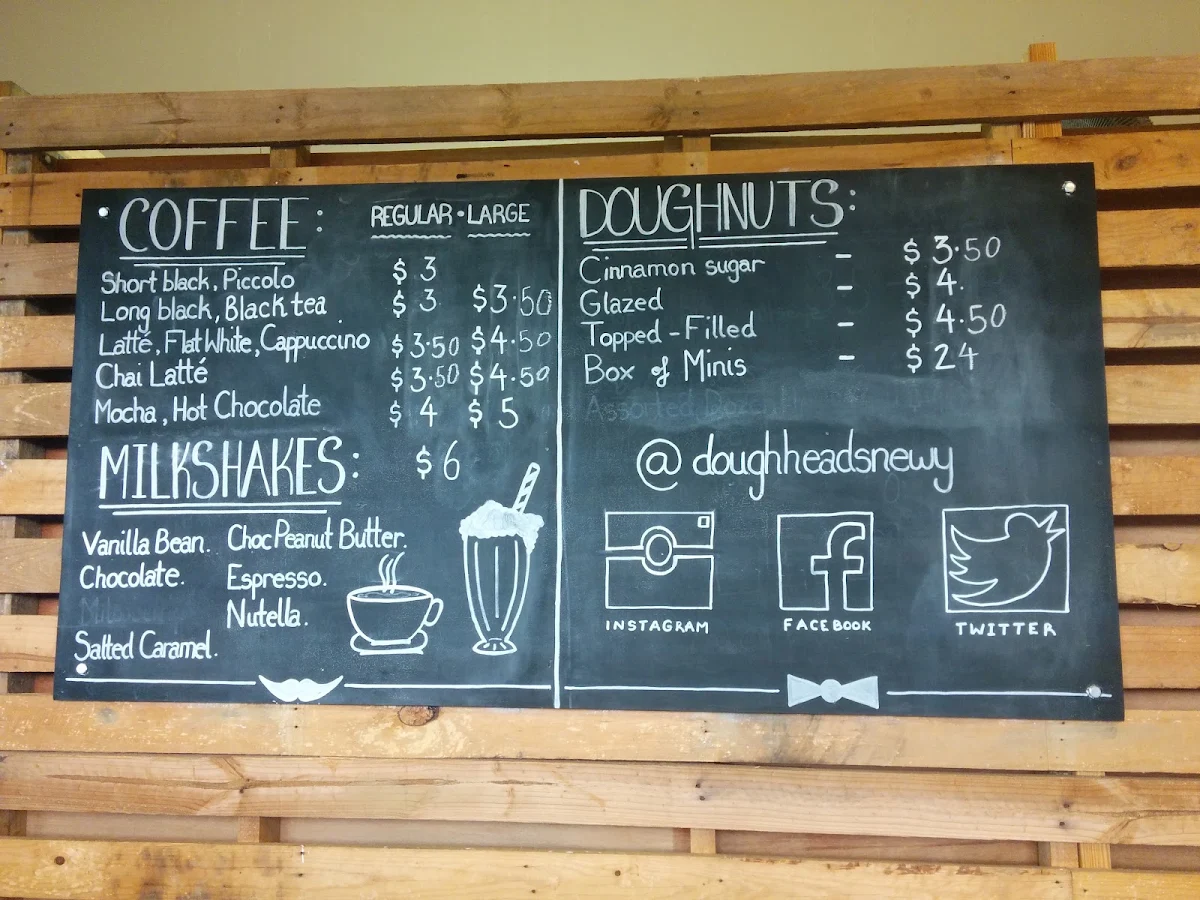 COFFEE: REGULAR · LARGE
Short black, Piccolo $3
Long black, Black tea $3 $3·50
Latté, Flat White, Cappuccino $3·50 $4·50
Chai Latté $3·50 $4·50
Mocha, Hot Chocolate $4 $5
MILKSHAKES: $6
Vanilla Bean. Choc Peanut Butter.
Chocolate. Espresso.
Nutella.
Salted Caramel.
DOUGHNUTS:
Cinnamon sugar - $3·50
Glazed - $4.
Topped - Filled - $4·50
Box of Minis - $24
Assorted
@doughheadsnewy
INSTAGRAM FACEBOOK TWITTER